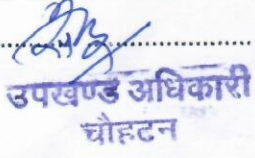 उपखण्ड अधिकारी
चौहटन